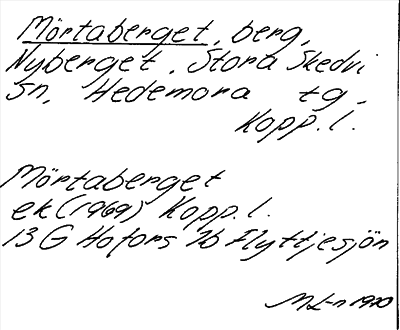 Mörtaberget, berg,
Nyberget, Stora Skedvi
sn, Hedemora tg,
Kopp. l.
Mörtaberget
ek (1969) Kopp. l.
13 G Hofors 7b Flyttjesjön
ML-n 1970